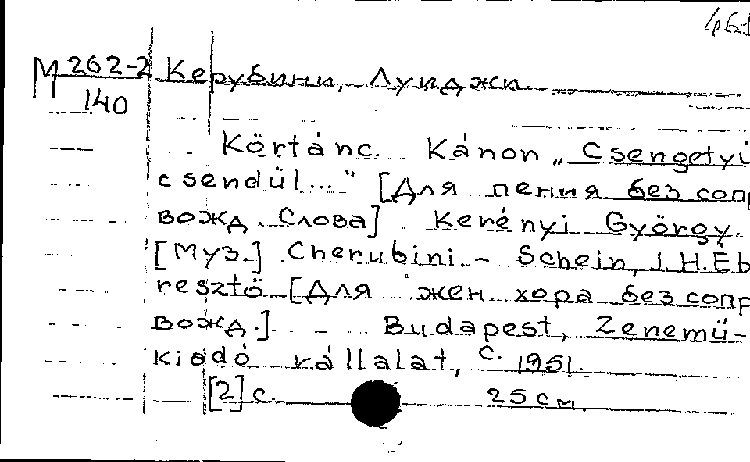 461
М 262-2 Керубини, Луиджи.
140
Körtánc. Kánon „Csengetyü
csendül..." [Для пения без сопр
вожд. Слова] Kerényi György.
[Муз.] Cherubini – Schein, J. H. Éb
resztö [Для жен. хора без сопр
вожд.] – Budapest, Zenemü-
kiadó vállalat, c. 1951.
[2] с. 25 см.